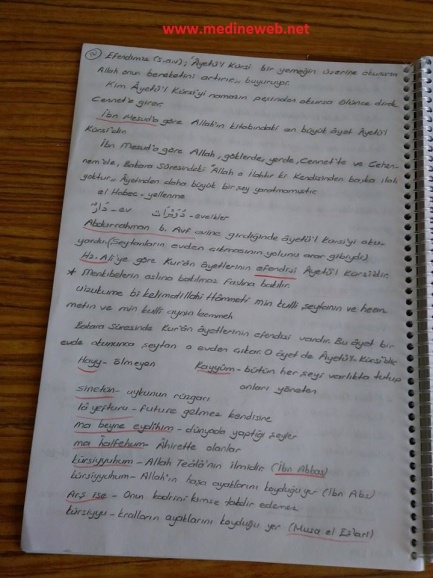 www.medineweb.net
② Efendimiz (s.a.v); "Âyetü'l Kürsi bir yemeğin üzerine okunursa
Allah onun bereketini artırır" buyuruyor.
Kim Âyetü'l Kürsi'yi namazın peşinden okursa ölünce direk
Cennet'e girer
İbn Mesud'a göre Allah'ın kitabındaki en büyük âyet Âyetü'l
Kürsi'dir.
İbn Mesud'a göre Allah, göklerde, yerde, Cennet'te ve Cehen-
nem'de, Bakara Sûresindeki "Allah o ilahtır ki Kendisinden başka ilah
yoktur" Âyetinden daha büyük bir şey yaratmamıştır
el Habec - yellenme
دَارٌ - ev - evcikler
Abdurrahman b. Avf evine girdiğinde âyetü'l kürsi'yi oku
yordu. (Şeytanların evden çıkmasının yolunu arar gibiydi)
Hz. Ali'ye göre Kur'ân âyetlerinin efendisi Âyetü'l Kürsi'dir.
* Menkıbelerin aslına bakılmaz faslına bakılır.
min kulli şeytanin ve hem-
metin ve min kulli aynin lemmeh
Bakara Sûresinde Kur'ân âyetlerinin efendisi vardır. Bu âyet bir
evde okununca şeytan o evden çıkar. O âyet de Âyetü'l Kürsi'dir
Hayy - ölmeyen Kayyûm - bütün her şeyi varlıkta tutup
onları yöneten
sinetun - uykunun rüzgarı
lâ - gelmez kendisine
ma beyne eydîhim - dünyada yaptığı şeyler
ma halfehum - Âhirette olanlar
kürsiyyuhum - Allah Teâlâ'nın ilmidir (İbn Abbas)
kürsiyyuhum - Allah'ın ayaklarını koyduğu yer (İbn Abs)
Arş ise - Onun kadrini kimse takdir edemez
kürsiyyu - kralların ayaklarını koyduğu yer (Musa el Eş'ari)